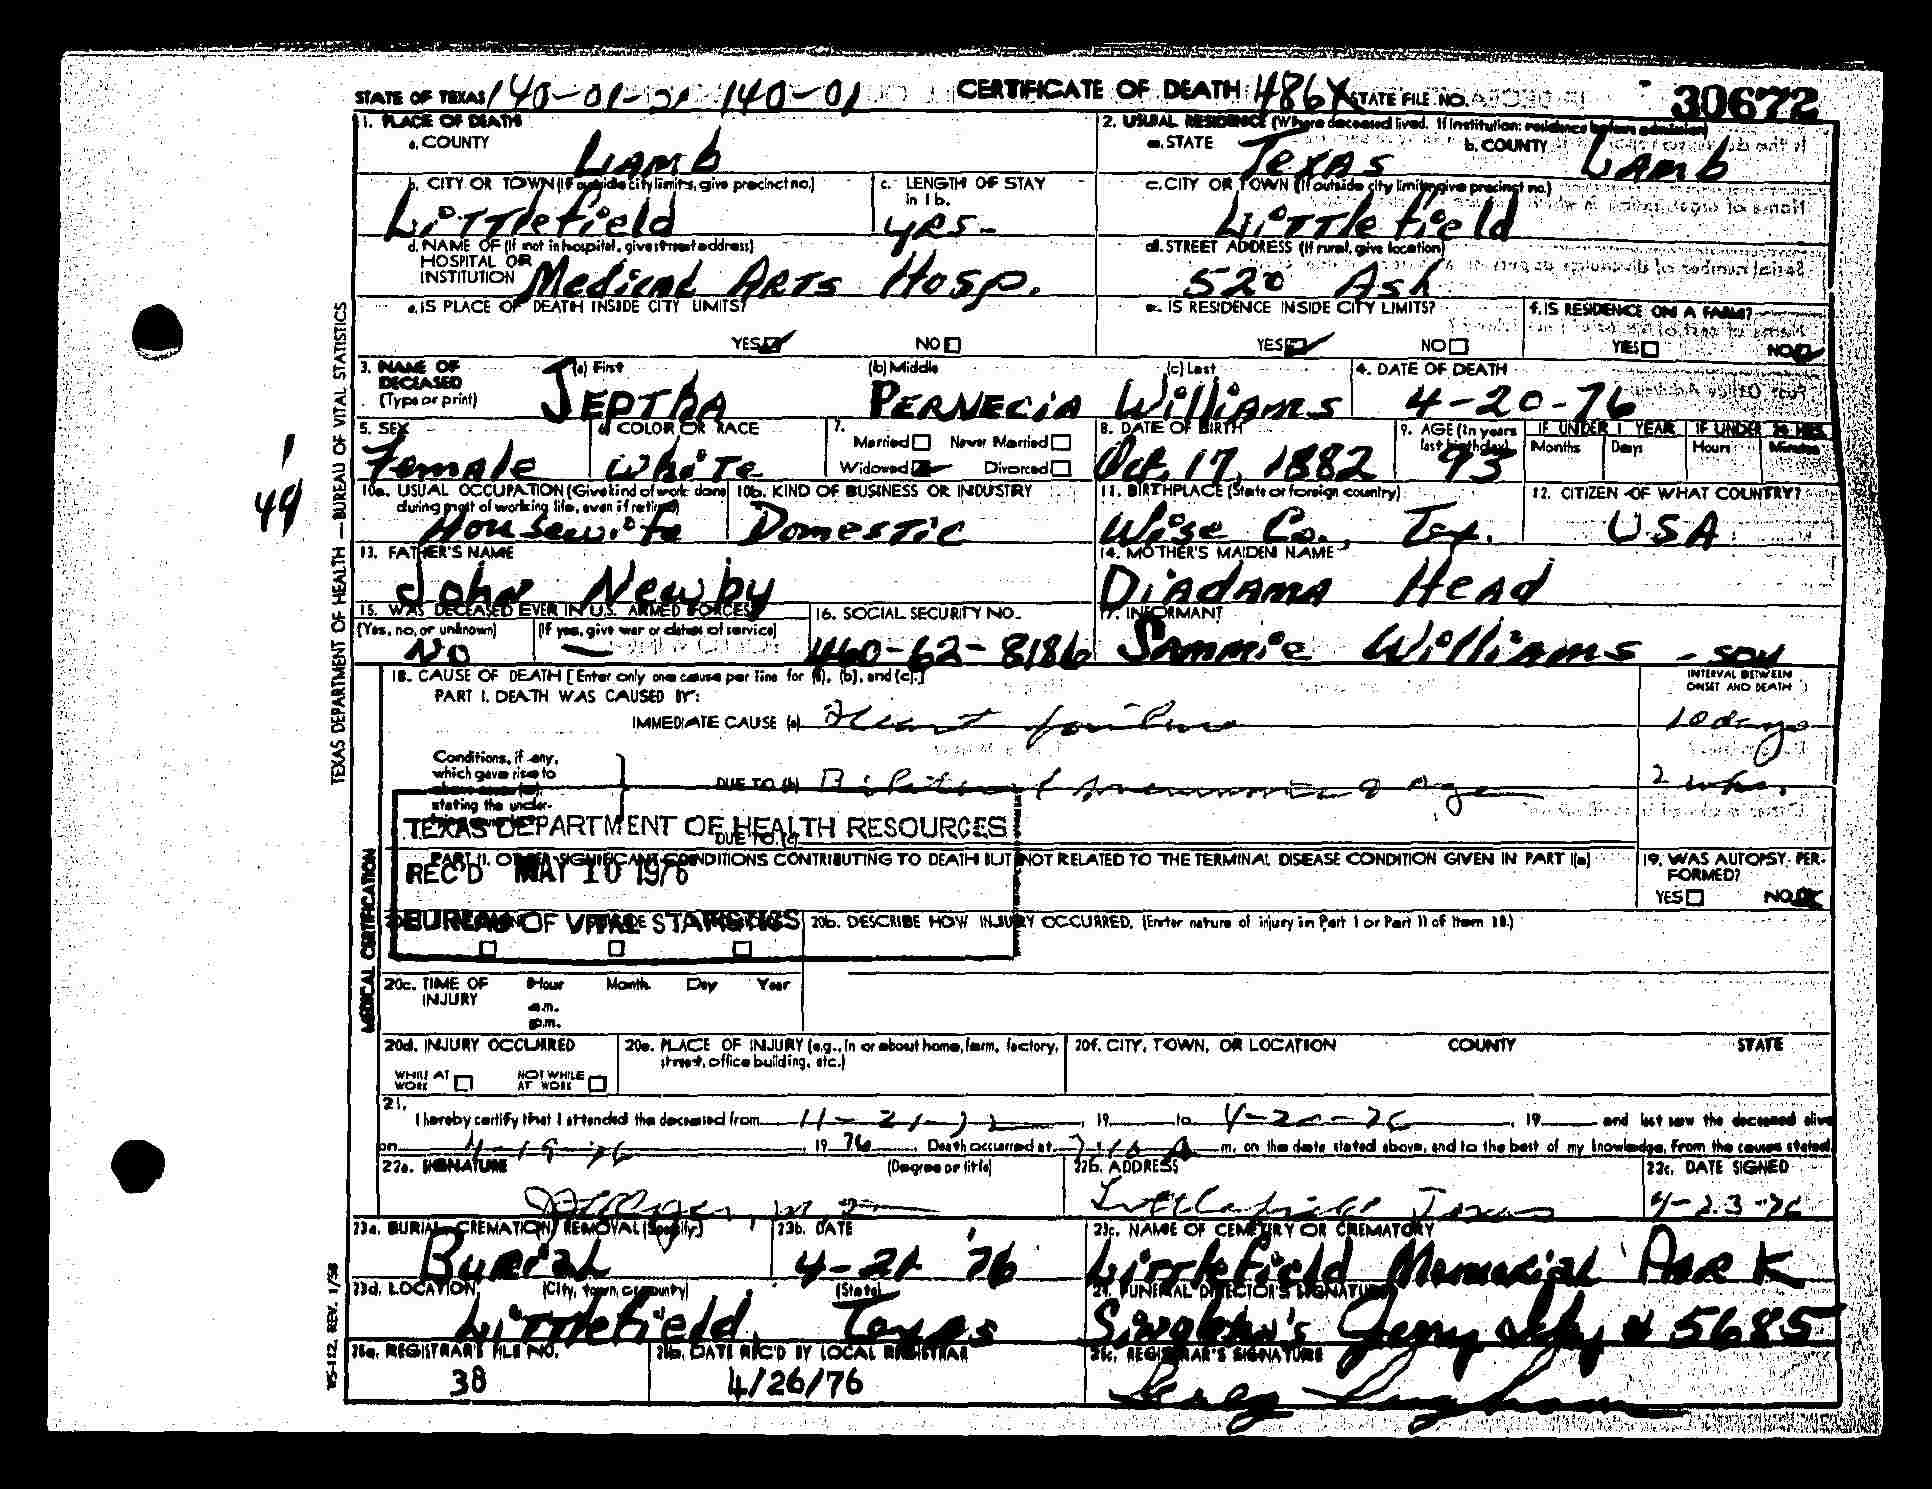 STATE OF TEXAS 140-01- 140-01 CERTIFICATE OF DEATH 486X STATE FILE NO. 30672
1. PLACE OF DEATH 2. USUAL RESIDENCE (Where deceased lived. If institution: residence before admission)
a. COUNTY Lamb a. STATE Texas b. COUNTY Lamb
b. CITY OR TOWN (If outside city limits, give precinct no.) c. LENGTH OF STAY in 1b. c. CITY OR TOWN (If outside city limits, give precinct no.)
Littlefield yrs- Littlefield
d. NAME OF (If not in hospital, give street address) HOSPITAL OR INSTITUTION Medical Arts Hosp. d. STREET ADDRESS (If rural, give location) 520 Ash
e. IS PLACE OF DEATH INSIDE CITY LIMITS? e. IS RESIDENCE INSIDE CITY LIMITS? f. IS RESIDENCE ON A FARM?
YES NO YES NO YES NO
3. NAME OF DECEASED (Type or print) (a) First (b) Middle (c) Last 4. DATE OF DEATH
Jeptha Pernecia Williams 4-20-76
5. SEX 6. COLOR OR RACE 7. Married Never Married Widowed Divorced 8. DATE OF BIRTH 9. AGE (In years last birthday) IF UNDER 1 YEAR IF UNDER 24 HRS.
Months Days Hours Minutes
Female White Oct. 17, 1882 93
10a. USUAL OCCUPATION (Give kind of work done during most of working life, even if retired) 10b. KIND OF BUSINESS OR INDUSTRY 11. BIRTHPLACE (State or foreign country) 12. CITIZEN OF WHAT COUNTRY?
Housewife Domestic Wise Co., Tex. USA
13. FATHER'S NAME 14. MOTHER'S MAIDEN NAME
John Newby Diadama Head
15. WAS DECEASED EVER IN U.S. ARMED FORCES? 16. SOCIAL SECURITY NO. 17. INFORMANT
(Yes, no, or unknown) (If yes, give war or dates of service)
No — 460-62-8186 Sammie Williams - son
18. CAUSE OF DEATH [Enter only one cause per line for (a), (b), and (c).] INTERVAL BETWEEN ONSET AND DEATH
PART I. DEATH WAS CAUSED BY:
IMMEDIATE CAUSE (a) Heart failure 10 days
Conditions, if any, which gave rise to above cause (a), stating the under-lying cause last.
DUE TO (b) pneumonia & age 2 wks.
DUE TO (c)
TEXAS DEPARTMENT OF HEALTH RESOURCES
REC'D MAY 10 1976
BUREAU OF VITAL STATISTICS
PART II. OTHER SIGNIFICANT CONDITIONS CONTRIBUTING TO DEATH BUT NOT RELATED TO THE TERMINAL DISEASE CONDITION GIVEN IN PART I(a) 19. WAS AUTOPSY PER-FORMED?
YES NO
20b. DESCRIBE HOW INJURY OCCURRED. (Enter nature of injury in Part I or Part II of Item 18.)
20c. TIME OF INJURY Hour Month Day Year
a.m.
p.m.
20d. INJURY OCCURRED 20e. PLACE OF INJURY (e.g., in or about home, farm, factory, street, office building, etc.) 20f. CITY, TOWN, OR LOCATION COUNTY STATE
WHILE AT WORK NOT WHILE AT WORK
21. I hereby certify that I attended the deceased from 11-21-72, 19 to 4-20-76, 19 and last saw the deceased alive
on 4-19-76, 19 76. Death occurred at A m., on the date stated above, and to the best of my knowledge, from the causes stated.
22a. SIGNATURE (Degree or title) 22b. ADDRESS 22c. DATE SIGNED
Littlefield Texas 4-23-76
23a. BURIAL, CREMATION, REMOVAL (Specify) 23b. DATE 23c. NAME OF CEMETERY OR CREMATORY
Burial 4-21 '76 Littlefield Memorial Park
23d. LOCATION (City, town, or county) (State) 24. FUNERAL DIRECTOR'S SIGNATURE
Littlefield, Texas # 5685
25a. REGISTRAR'S FILE NO. 25b. DATE REC'D BY LOCAL REGISTRAR 25c. REGISTRAR'S SIGNATURE
38 4/26/76
TEXAS DEPARTMENT OF HEALTH — BUREAU OF VITAL STATISTICS
MEDICAL CERTIFICATION
VS-112, REV. 1/58